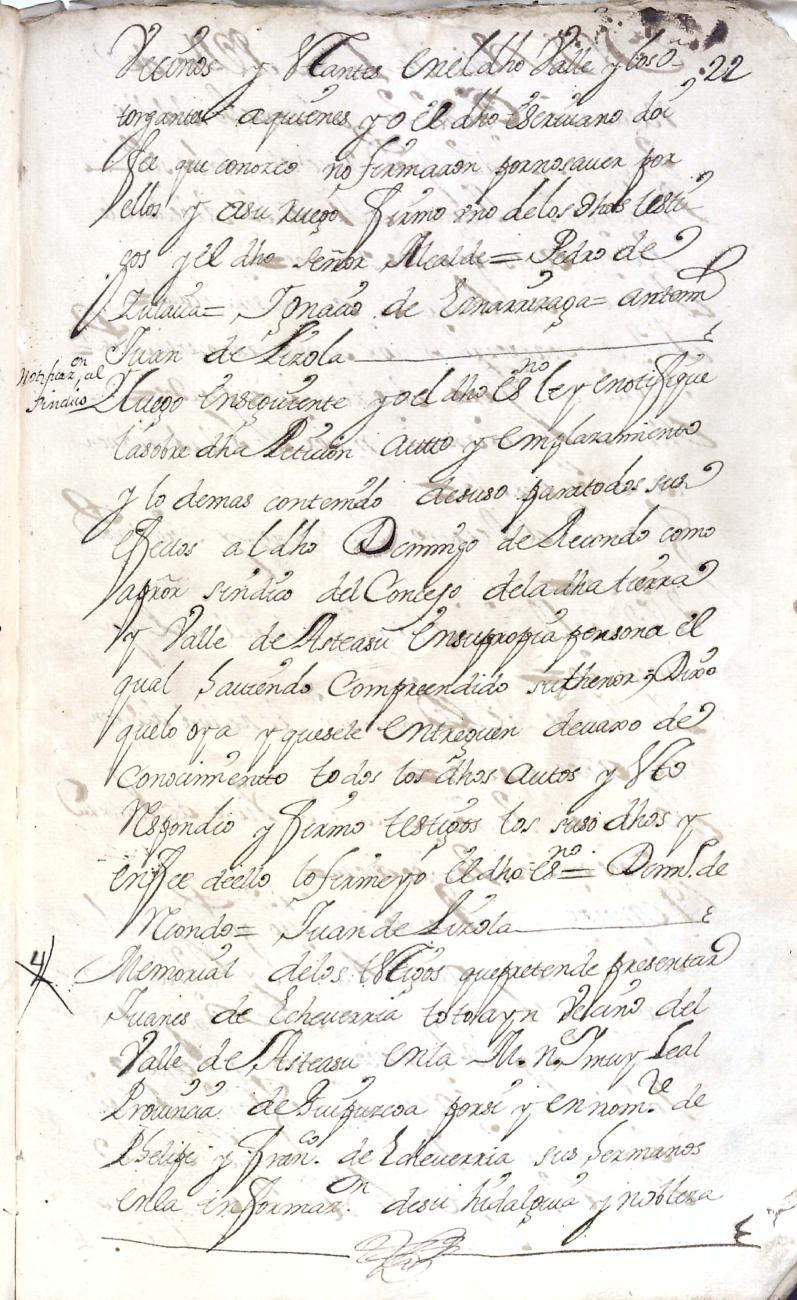 Vecinos y Estantes en el dho Valle y los o- 22
torgantes a quienes yo el dho escriuano doi
fee que conozco no firmaron por no sauer por
ellos y a su ruego firmo vno de los dhos testi
gos y el dho señor Alcalde= Pedro de
Zulaica= Ignacio de Ernarrizaga= antemi
Juan de Lizola
Notificaz.on al
sindico
Luego Insequiente yo el dho es.no ley e notifique
la sobre dha Peticion autto y emplazamiento
y lo demas contenido desuso para todos sus
efectos al dho Domingo de Recondo como
a pror sindico del Concejo de la dha tierra
y Valle de Asteasu en su propia persona el
qual hauiendo Compreendido su thenor Dixo
que lo oya y que se le entreguen deuaxo de
conocimiento todos los dhos autos y Esto
Respondio y firmo testigos los suso dhos y
en fee de ello lo firme yo el dho es.no= Dom.o de
Recondo= Juan de Lizola
4
Memorial de los testigos que pretende presentar
Juanes de Echeverria totorayn vecino del
Valle de Asteasu en la M. N. e I muy Leal
Prouincia de Guipuzcoa por si y en nom.re de
Phelipe y Fran.co de Echeverria sus hermanos
en la informaz.on de su hidalguia y nobleza